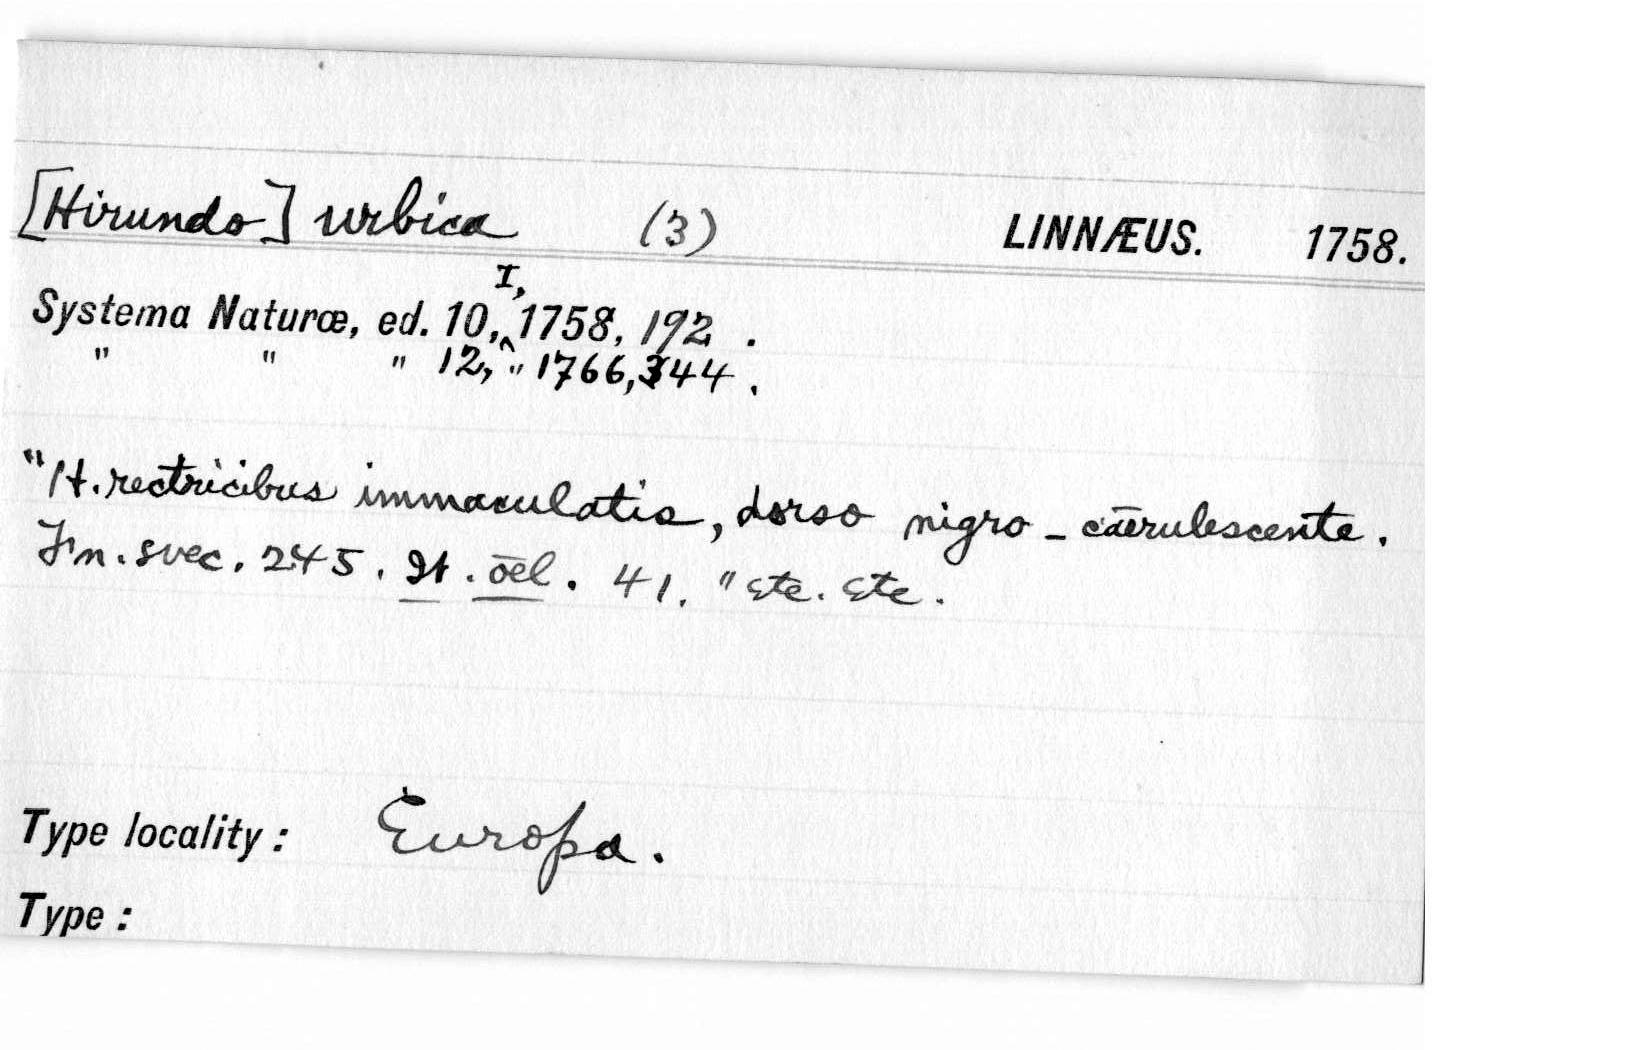 [Hirundo] urbica (3) LINNÆUS. 1758.
Systema Naturæ, ed. 10, I, 1758, 192.
" " " 12, " 1766, 344.
"H. rectricibus immaculatis, dorso nigro-cærulescente.
Fn. svec. 245. It. œl. 41. " Etc. Etc.
Type locality: Europa.
Type: